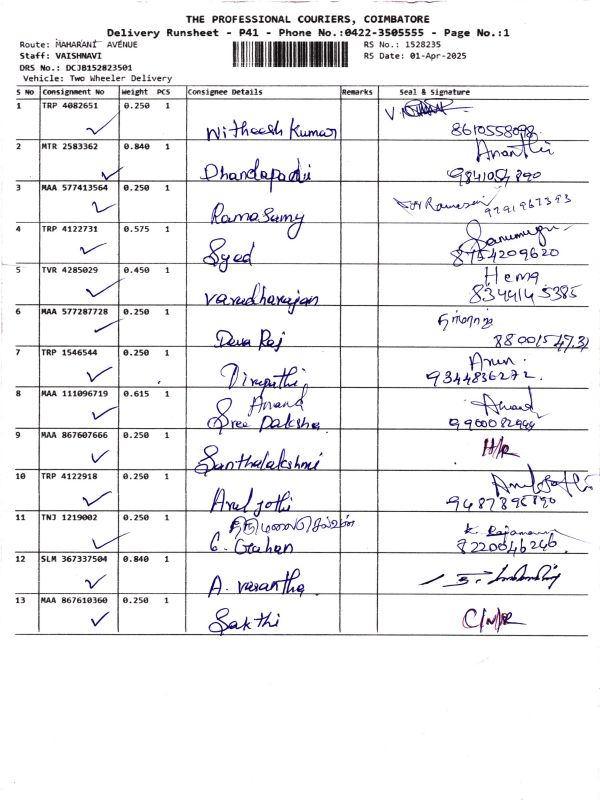 THE PROFESSIONAL COURIERS, COIMBATORE
Delivery Runsheet - P41 - Phone No.:0422-3505555 - Page No.:1
Route: MAHARANI AVENUE
RS No.: 1528235
Staff: VAISHNAVI
RS Date: 01-Apr-2025
DRS No.: DCJB152823501
Vehicle: Two Wheeler Delivery
S No Consignment No Weight PCS Consignee Details Remarks Seal & Signature
1 TRP 4082651 0.250 1
Witheesh Kumar 8610558098
2 MTR 2583362 0.840 1 Ananthi
Dhandapadi
3 MAA 577413564 0.250 1
RamaSamy 9791967393
4 TRP 4122731 0.575 1
Syed 8754209620
5 TVR 4285029 0.450 1 Hema
Varadharajan 8344145385
6 MAA 577287728 0.250 1
Deva Raj
7 TRP 1546544 0.250 1 Arun
9344836272.
8 MAA 111096719 0.615 1 Anand Anand
Sree Daksha
9 MAA 867607666 0.250 1 H/R
Santhalakshmi
10 TRP 4122918 0.250 1
Arul jothi 9487896190
11 TNJ 1219002 0.250 1 K. Rajamani
G. Grahan 8220046246
12 SLM 367337504 0.840 1
A. Vasantha
13 MAA 867610360 0.250 1
Sakthi C/N/R